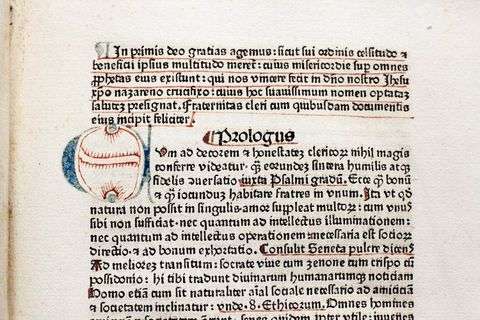 In primis deo gratias agemus: sicut sui ordinis celsitudo ⁊
beneficii ipsius multitudo meret᷑: cuius misericordie sup omnes
ꝓphetas eius existunt: qui nos vincere fecit in dn̄o nostro Jhesu
xp̄o nazareno crucifixo: cuius hoc suauissimum nomen optataꝫ
saluteꝫ presignat. Fraternitas cleri cum quibusdam documentis
eius incipit feliciter.
Prologus
Cum ad decorem ⁊ honestateꝫ clericoꝝ nihil magis
conferre videatur. ꝙ̄ eorundeꝫ sincera humilis atqꝫ
fidelis ꝯuersatio iuxta Psalmi gradū. Ecce ꝙ̄ bonū
⁊ ꝙ̄ iocunduꝫ habitare fratres in vnum. Ita vt qd
natura non possit in singulis amor suppleat multoꝝ: cum vnus
sibi non sufficiat. nec quantum ad intellectus illuminationem:
nec quantum ad intellectus operationem: necessaria est socioꝝ
directio. ⁊ ad bonum exhortatio. Consulit Seneca pulcre dicens
Ad melioreꝫ transitum: socrate viue cum zenone cum crispo cū
possidonio: hi tibi tradunt diuinarum humanarumqꝫ noticiam
Homo etiā cum sit naturaliter aīal sociale necessario ad amiciciā
⁊ societatem inclinatur: vnde. 8. Ethicorum. Omnes homines